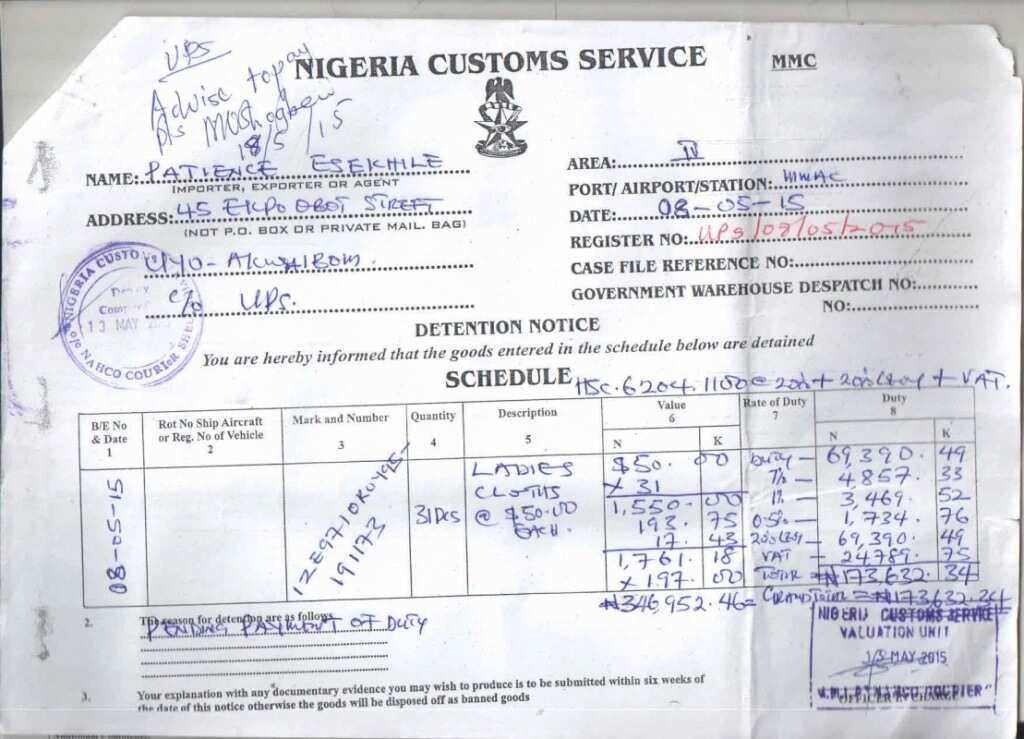 UPS
Advise to pay
pls
18/5/15
NIGERIA CUSTOMS SERVICE
MMC
NAME: PATIENCE ESEKHILE
IMPORTER, EXPORTER OR AGENT
ADDRESS: 45 EKPO OBOT STREET
(NOT P.O. BOX OR PRIVATE MAIL. BAG)
UYO - AKWAIBOM.
c/o UPS.
AREA: II
PORT/ AIRPORT/STATION:
DATE: 08-05-15
REGISTER NO: UPS/08/05/2015
CASE FILE REFERENCE NO:
GOVERNMENT WAREHOUSE DESPATCH NO:
NO:
NIGERIA CUSTOMS
13 MAY
c/o NAHCO COURIER SHED
DETENTION NOTICE
You are hereby informed that the goods entered in the schedule below are detained
SCHEDULE
HSC. 6204.1100 @ 20% + 20% Levy + VAT.
B/E No & Date 1
Rot No Ship Aircraft or Reg. No of Vehicle 2
Mark and Number 3
Quantity 4
Description 5
Value 6 N K
Rate of Duty 7
Duty 8 N K
08-05-15
191173
31Pcs
LADIES CLOTHS @ $50.00 EACH.
$50. 00
x 31
1,550. 00
193. 75
17. 43
1,761. 18
x 197. 00
₦346,952.46=
Duty — 69,390. 49
7% — 4,857. 33
1% — 3,469. 52
0.5% — 1,734. 76
20% Levy — 69,390. 49
VAT — 24,789. 75
Total = ₦173,632. 34
Grand Total = ₦173,632.34
2. The reason for detention are as follows
PENDING PAYMENT OF DUTY
NIGERIA CUSTOMS SERVICE
VALUATION UNIT
13 MAY 2015
NAHCO COURIER"
OFFICER I/CHARGE
3. Your explanation with any documentary evidence you may wish to produce is to be submitted within six weeks of
the date of this notice otherwise the goods will be disposed off as banned goods